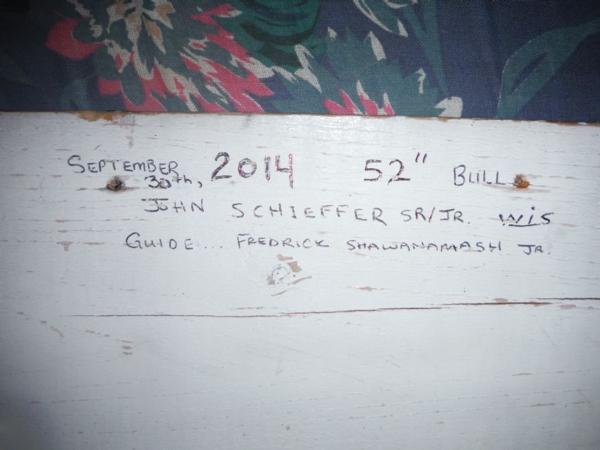 SEPTEMBER 30th, 2014 52" BULL
JOHN SCHIEFFER SR/JR. WIS
GUIDE... FREDRICK SHAWANAMASH JR.